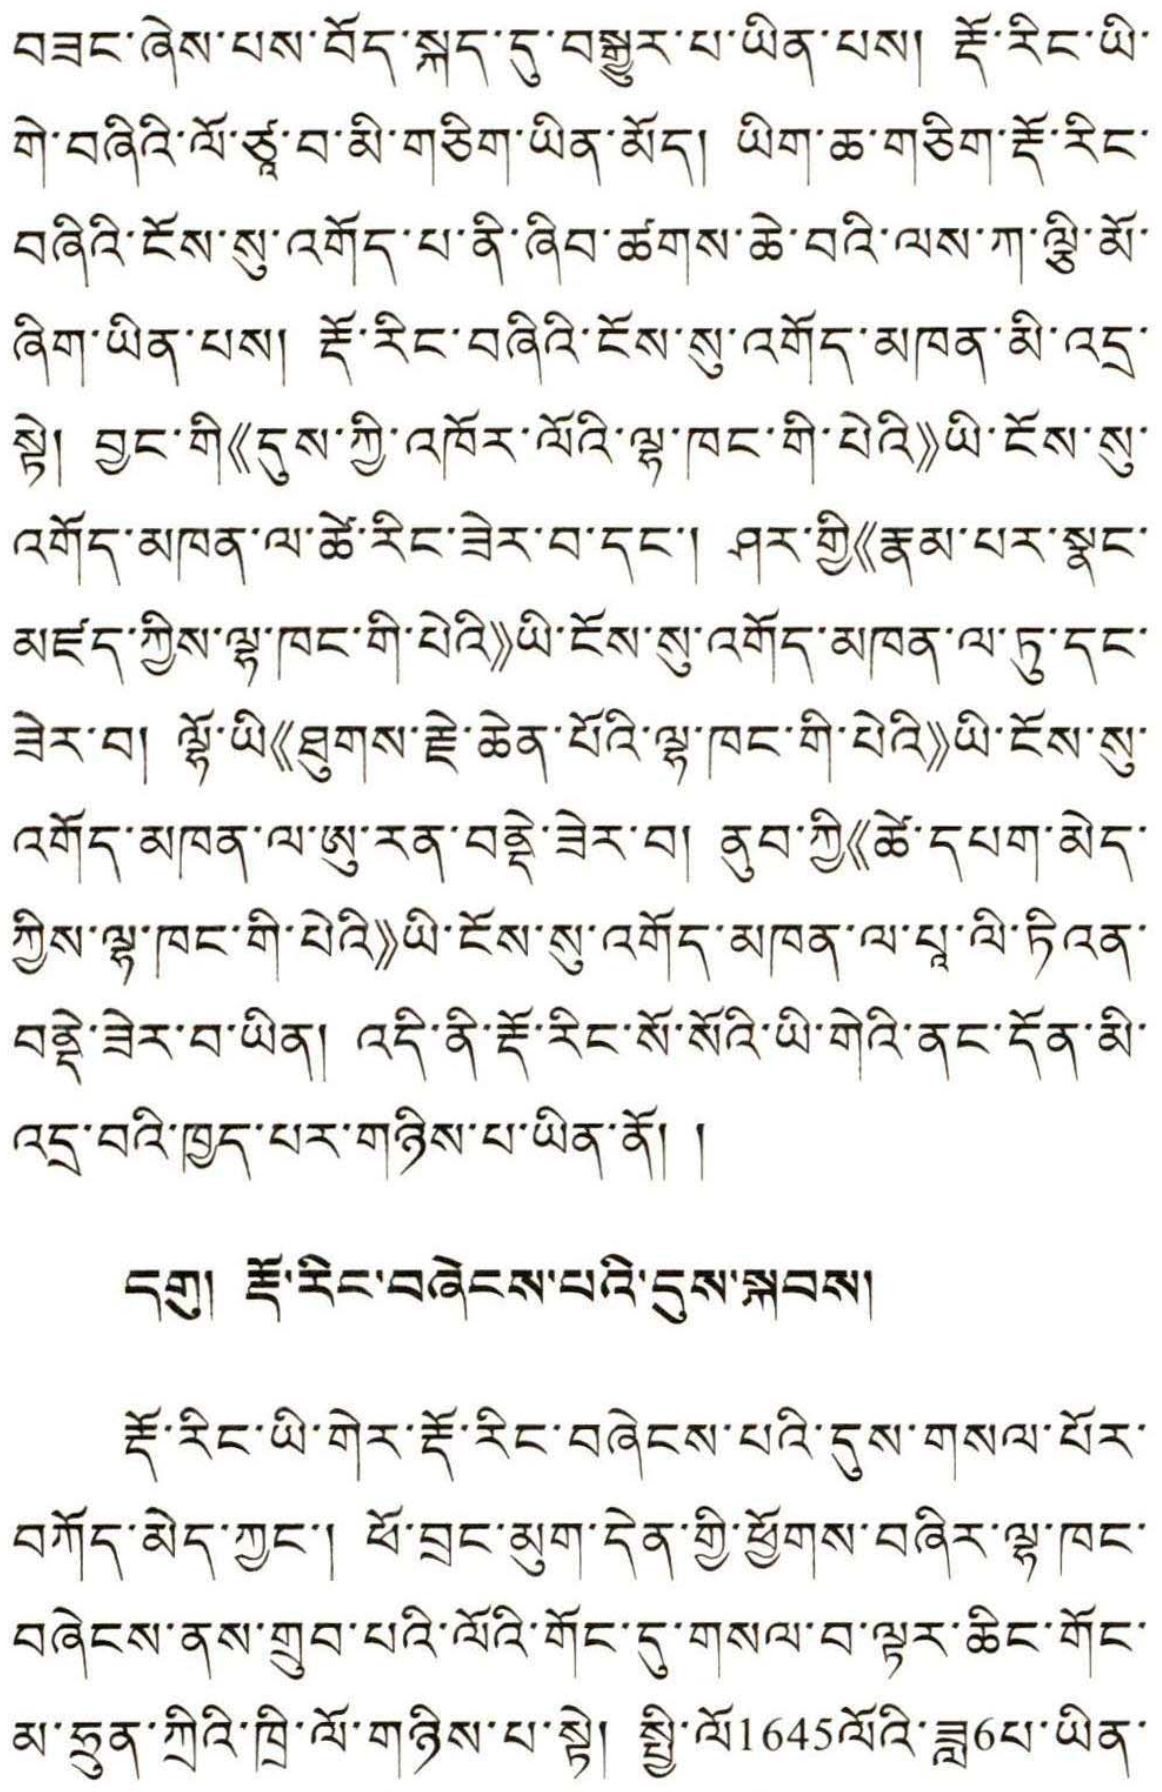 བཟང་ཞེས་པས་བོད་སྐད་དུ་བསྒྱུར་པ་ཡིན་པས། རྡོ་རིང་ཡི་
གེ་བཞིའི་ལོ་ཙཱ་བ་མི་གཅིག་ཡིན་མོད། ཡིག་ཆ་གཅིག་རྡོ་རིང་
བཞིའི་ངོས་སུ་འགོད་པ་ནི་ཞིབ་ཚགས་ཆེ་བའི་ལས་ཀ་ལྕི་མོ་
ཞིག་ཡིན་པས། རྡོ་རིང་བཞིའི་ངོས་སུ་འགོད་མཁན་མི་འདྲ་
སྟེ། བྱང་གི《དུས་ཀྱི་འཁོར་ལོའི་ལྷ་ཁང་གི་པེའི》ཡི་ངོས་སུ་
འགོད་མཁན་ལ་ཚེ་རིང་ཟེར་བ་དང་། ཤར་གྱི《རྣམ་པར་སྣང་
མཛད་ཀྱིས་ལྷ་ཁང་གི་པེའི》ཡི་ངོས་སུ་འགོད་མཁན་ལ་ཏུ་དང་
ཟེར་བ། ལྷོ་ཡི《ཐུགས་རྗེ་ཆེན་པོའི་ལྷ་ཁང་གི་པེའི》ཡི་ངོས་སུ་
འགོད་མཁན་ལ་ཨུ་རན་བནྡེ་ཟེར་བ། ནུབ་ཀྱི《ཚེ་དཔག་མེད་
ཀྱིས་ལྷ་ཁང་གི་པེའི》ཡི་ངོས་སུ་འགོད་མཁན་ལ་པཱུ་ལི་ཏིའན་
བནྡེ་ཟེར་བ་ཡིན། འདི་ནི་རྡོ་རིང་སོ་སོའི་ཡི་གེའི་ནང་དོན་མི་
འདྲ་བའི་ཁྱད་པར་གཉིས་པ་ཡིན་ནོ། །
དགུ། རྡོ་རིང་བཞེངས་པའི་དུས་སྐབས།
རྡོ་རིང་ཡི་གེར་རྡོ་རིང་བཞེངས་པའི་དུས་གསལ་པོར་
བཀོད་མེད་ཀྱང་། ཕོ་བྲང་མུག་དེན་གྱི་ཕྱོགས་བཞིར་ལྷ་ཁང་
བཞེངས་ནས་གྲུབ་པའི་ལོའི་གོང་དུ་གསལ་བ་ལྟར་ཆིང་གོང་
མ་ཧྲུན་ཀྲིའི་ཁྲི་ལོ་གཉིས་པ་སྟེ། སྤྱི་ལོ1645ལོའི་ཟླ6པ་ཡིན་